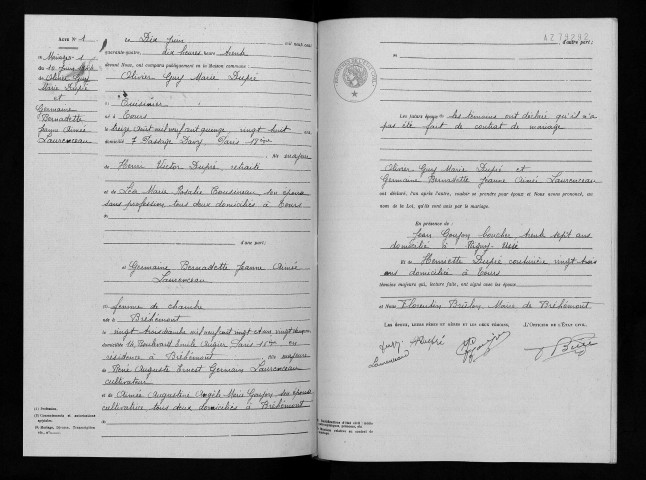 Acte N° 1
Mariage 1
du 10 Juin 1944
Olivier Guy
Marie Dupré
et
Germaine
Bernadette
Jeanne Aimée
Laurenceau
Le Dix Juin mil neuf cent
quarante-quatre, dix heures trente
devant Nous, ont comparu publiquement en la maison commune :
Olivier Guy Marie Dupré
Cuisinier
né à Tours
le treize août mil neuf cent quinze vingt huit ans
domicilié 7 Passage Davy Paris
majeur
de Henri Victor Dupré, retraité
et de Léa Marie Rosalie son épouse
sans profession tous deux domiciliés à Tours
d'une part;
et Germaine Bernadette Jeanne Aimée
Laurenceau
femme de chambre
née à Bréhémont
le vingt mil neuf cent vingt et un
domiciliée 14 Boulevard Emile Augier Paris 16ème en
résidence à Bréhémont majeure
de René Auguste Ernest Germain Laurenceau
cultivateur
et de Aimée Augustine Angèle Marie son épouse
cultivatrice tous deux domiciliés à Bréhémont
(1) Profession.
d'autre part;
Les futurs époux les témoins ont déclaré qu'il n'a
pas été fait de contrat de mariage
Olivier Guy Marie Dupré et
Germaine Bernadette Jeanne Aimée Laurenceau
ont déclaré, l'un après l'autre, vouloir se prendre pour époux et Nous avons prononcé, au
nom de la Loi, qu'ils sont unis par le mariage.
En présence de :
Jean boucher trente sept ans
domicilié à Rigny-Ussé
Et de Henriette Dupré couturière vingt trois
ans domiciliée à Tours
témoins majeurs qui, lecture faite, ont signé avec les époux
et Nous Florentin Maire de Bréhémont
Les époux, leurs pères et mères et les deux témoins, L'Officier de l'État civil,
Guy Dupré
Laurenceau